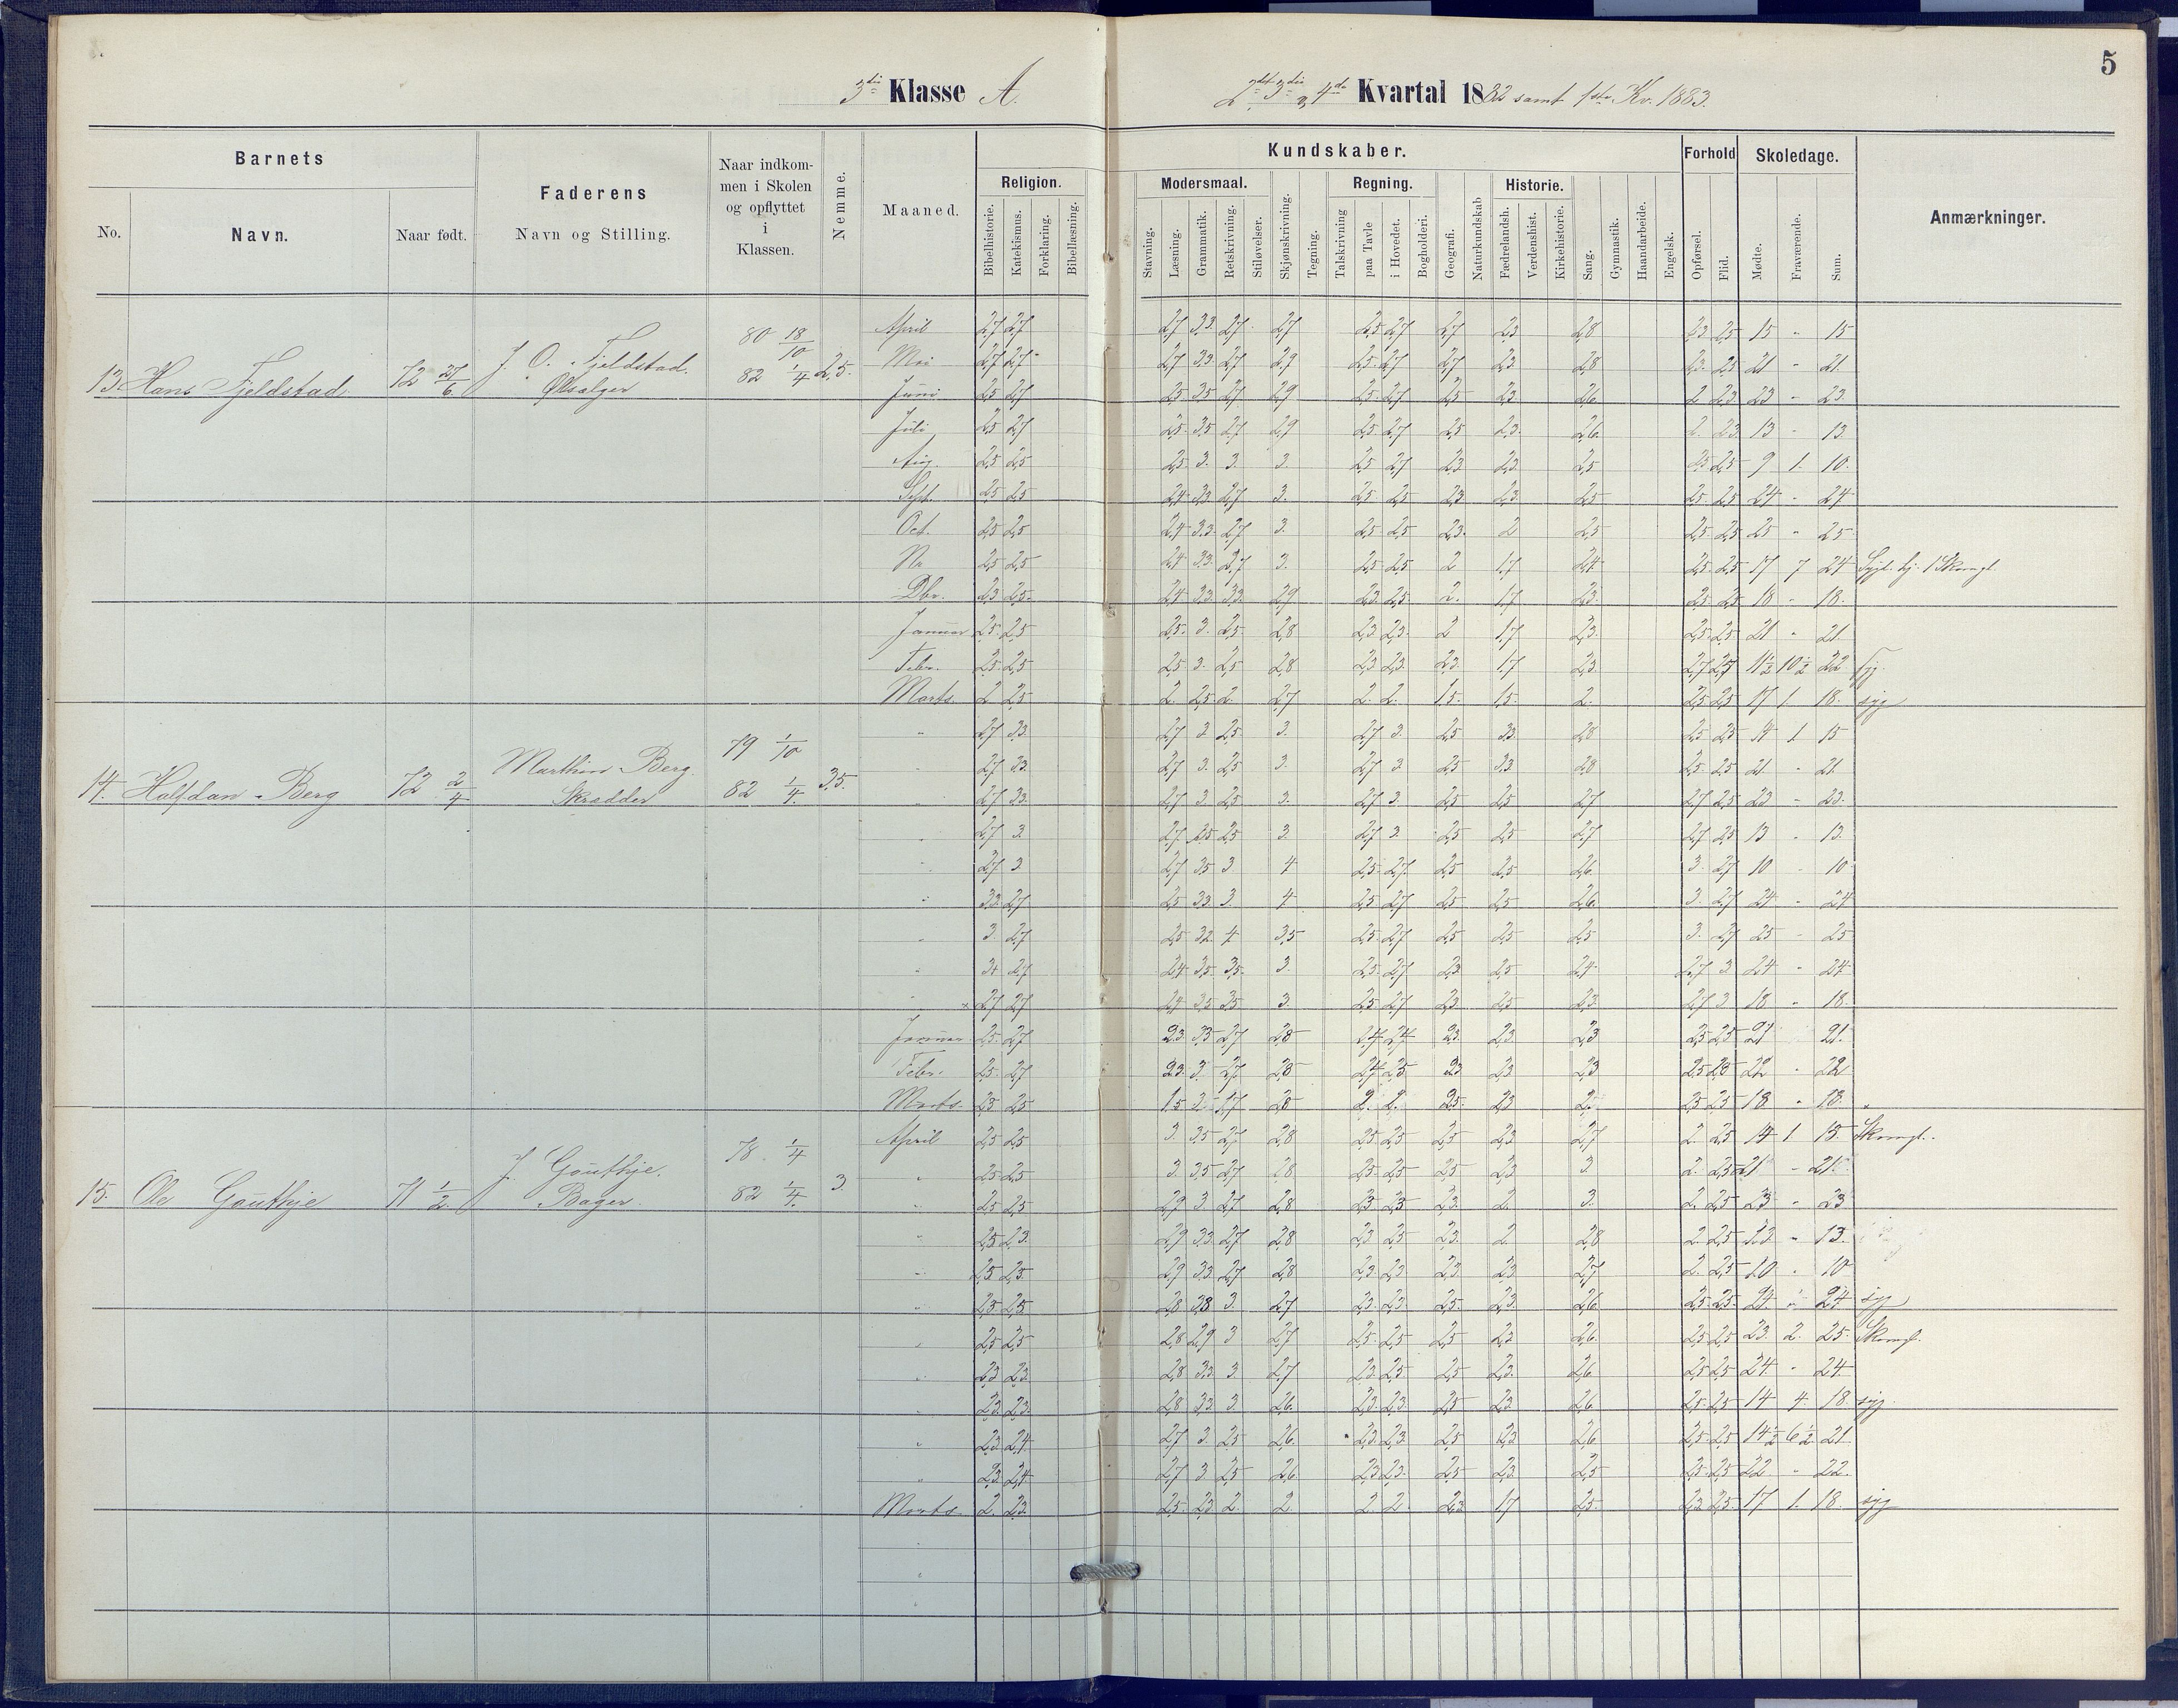 5
3die Klasse A. 2det 3die & 4de Kvartal 1882 samt 1ste Kv. 1883.
Barnets
Faderens
Naar indkom-
men i Skolen
og opflyttet
i
Klassen.
Nemme.
Maaned.
Kundskaber.
Forhold
Skoledage.
Anmærkninger.
No. Navn. Naar født. Navn og Stilling.
Religion. Modersmaal. Regning. Historie.
Bibelhistorie. Katekismus. Forklaring. Bibellæsning. Stavning. Læsning. Grammatik. Retskrivning. Stiløvelser. Skjønskrivning. Tegning. Talskrivning paa Tavle i Hovedet. Bogholderi. Geografi. Naturkundskab Fædrelandsh. Verdenshist. Kirkehistorie. Sang. Gymnastik. Haandarbeide. Engelsk. Opførsel. Flid. Mødte. Fraværende. Sum.
13. Hans Fjeldstad 72 27/6 J. O. Fjeldstad. Ølsælger 80 18/10 82 1/4 2,5.
April 2,7 2,7 2,7 3,3. 2,7. 2,7 2,5 2,7 2,7 2,3 2,8 2,3 2,5 15 - 15
Mai 2,7 2,7 2,7 3,3 2,7 2,9 2,5 2,7 2,7 2,3 2,8 2,3 2,5 21 - 21
Juni 2,5 2,7 2,5 3,5 2,7 2,9 2,5 2,7 2,5 2,3 2,6 2 2,3 23 - 23
Juli 2,5 2,7 2,5 3,5 2,7 2,9 2,5 2,7 2,5 2,3. 2,6 2. 2,3 13 - 13
Aug. 2,5 2,5 2,5 3. 3. 3. 2,5 2,7 2,3 2,3 2,5 2,5 2,5 9 1. 10.
Sept. 2,5 2,5 2,4 3,3 2,7 3. 2,5 2,5 2,3 2,3 2,5 2,5 2,5 24 - 24
Oct. 2,5 2,5 2,4 3,3 2,7 3. 2,5 2,5 2,3. 2 2,5 2,5 2,5 25 - 25
Nr 2,5 2,5 2,4 3,3 2,7 3. 2,5 2,5 2 1,7 2,4 2,5 2,5 17 7 24
Dbr. 2,3 2,5 2,4 3,3 3,3 2,9 2,3 2,5 2. 1,7 2,3 2,5 2,5 18 - 18.
Januar 2,5 2,5 2,5. 3. 2,5 2,8 2,3 2,3. 2 1,7 2,3. 2,5 2,5 21 - 21.
Febr. 2,5 2,5 2,5 3. 2,5 2,8 2,3 2,3. 2,3. 1,7 2,3 2,7 2,7 11½ 10½ 22 syg.
Marts. 2 2,5 2. 2,5 2. 2,7 2. 2. 1,5. 1,5. 2. 2,5 2,5 17 1. 18. syg
14. Halfdan Berg 72 2/4 Marthin Berg. Skrædder 79 1/10 82 1/4. 3,5.
" 2,7 3,3. 2,7 3 2,5 3. 2,7 3. 2,5 3,3 2,8 2,5 2,5 14 1 15
" 2,7 3,3. 2,7 3. 2,5 3. 2,7 3 2,5 3,3 2,8 2,5 2,5 21 - 21
" 2,7 3,3. 2,7 3 2,5 3. 2,7 3. 2,5 2,5 2,7 2,7 2,5 23 - 23.
" 2,7 3 2,7 3,5 2,5 3 2,7 3. 2,5 2,5 2,7 2,7 2,5 13 - 13.
" 2,7 3 2,7 3,5 3 4 2,5 2,7 2,5 2,5 2,6 3. 2,7 10 - 10
" 3,3. 2,7 2,5 3,3. 3. 4 2,5 2,7 2,5 2,5 2,6 3. 2,7 24 - 24
" 3. 2,7 2,5 3,2 4 3,5 2,5 2,7 2,5 2,5 2,5 3. 2,7 25 - 25
" 3. 2,7 2,4 3,5 3,5. 3. 2,5 2,7 2,3 2,5 2,4 2,7 3 24 - 24
" 2,7 2,7 2,4 3,5 3,5 3. 2,5 2,7 2,3 2,5 2,3 2,7 3 18 - 18.
Januar 2,5 2,7 2,3. 3,3 2,7 2,8 2,4 2,4 2,3. 2,3. 2,3 2,5 2,5 21 21.
Febr. 2,5 2,7 2,3. 3. 2,7 2,8 2,4 2,5 2,3 2,3 2,3 2,5 2,5 22 - 22
Marts. 2,5 2,5 1,5 2. 1,7 2,8 2. 2. 2,5. 2,3 2. 2,5 2,5 18 - 18.
15. Ole Gouthje 71 1/2 J. Gouthje. Bager. 78 1/4 82 1/4. 3.
April 2,5 2,5 3. 3,5 2,7 2,8 2,5 2,5 2,5 2,3 2,7 2. 2,5 14 1. 15.
" 2,5 2,5 3. 3,5 2,7 2,8 2,5 2,5 2,5 2,3 3. 2. 2,5 21 - 21.
" 2,5 2,5 2,9 3 2,7 2,8 2,3 2,5 2,3 2. 3. 2. 2,5 23 - 23
" 2,5 2,3. 2,9 3,3. 2,7 2,8 2,3 2,5 2,3. 2 2,8 2. 2,5 13 - 13.
" 2,5 2,5 2,9 3,3 2,7 2,8 2,3. 2,3. 2,3. 2,3 2,7 2. 2,5 10 - 10
" 2,5 2,5 2,8 3,3 3. 2,7 2,3. 2,3. 2,5. 2,3. 2,6 2,5 2,5 24. - 24 syg
" 2,5 2,5 2,8 2,9 3 2,7 2,5 2,5 2,5 2,3 2,6. 2,5 2,5 23. 2. 25.
" 2,3 2,3 2,8 3,3. 3. 2,7 2,3 2,5 2,5 2,3. 2,6 2,5 2,5 24. - 24
" 2,3. 2,3. 2,8 3,3. 3. 2,6. 2,3. 2,3. 2,5 2,3 2,6 2,5 2,5 14 4. 18. syg.
" 2,3 2,4. 2,7 3. 2,5 2,6. 2,3. 2,3. 2,5 2,3 2,6 2,5 2,5 14½ 6½ 21
" 2,3. 2,4 2,7 3 2,5 2,6. 2,3 2,3. 2,5 2,3. 2,5 2,5 2,5 22 - 22.
Marts 2. 2,3. 2,5. 2,3 2. 2. 2. 2. 2,3 1,7 2,5 2,3 2,5 17 1. 18. syg